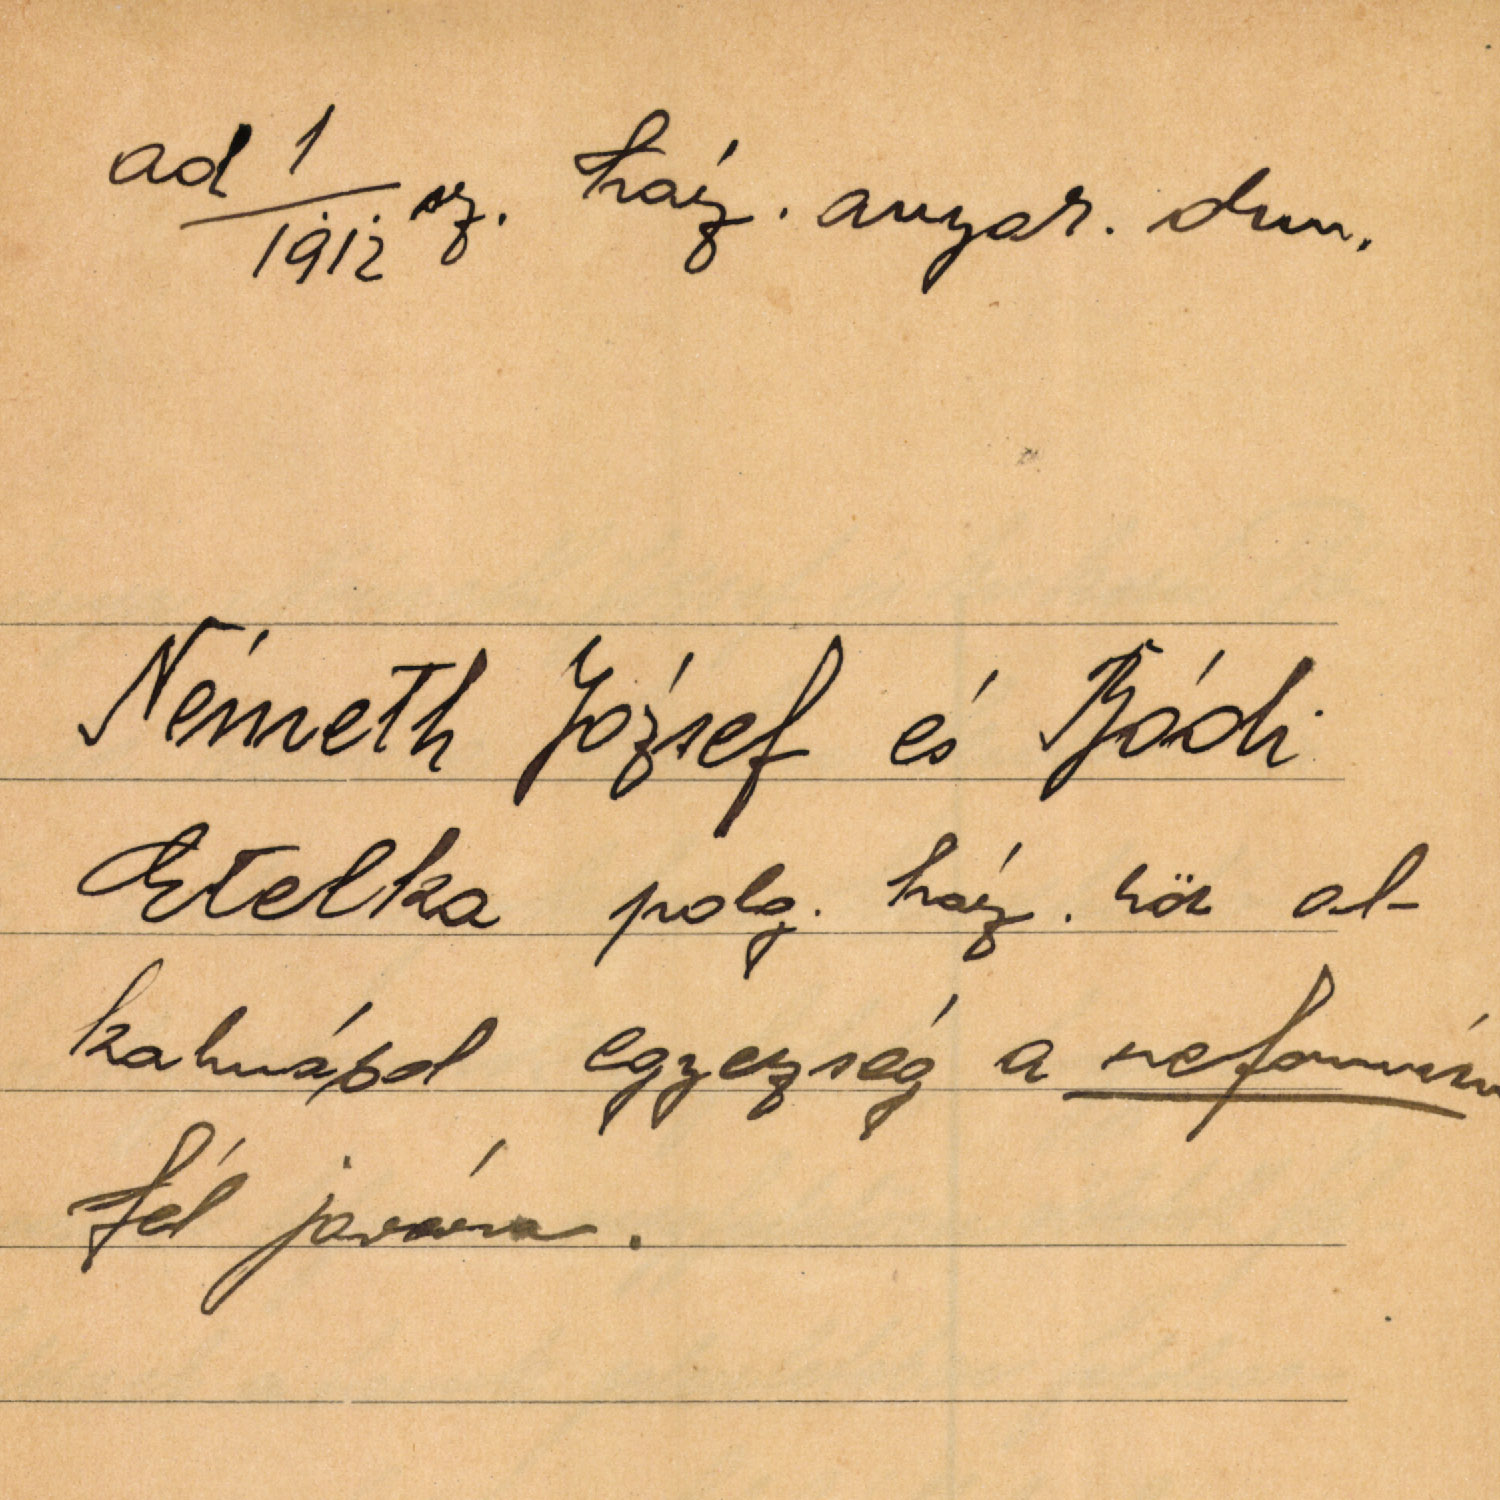 ad 1/1912 sz. ház. anyak. dun.
Németh József és Bódi
Etelka polg. ház. köt al-
kalmából egyezség a reformátu
fél javára.